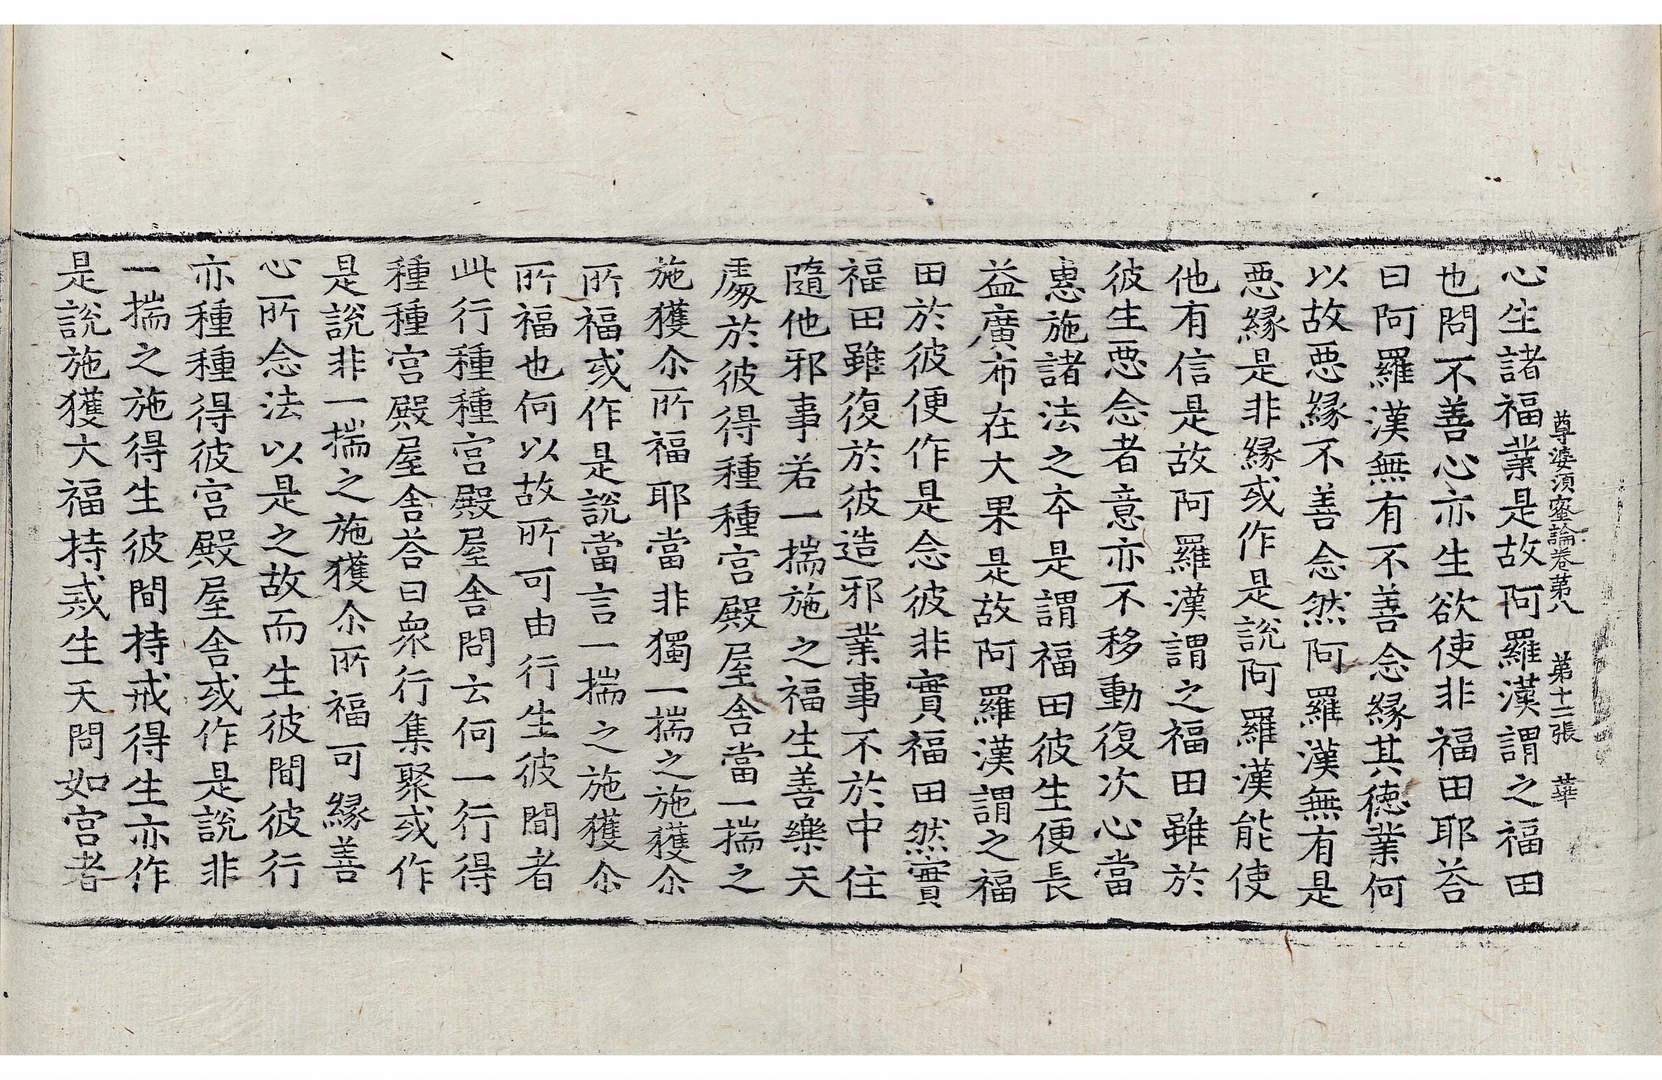 尊婆須蜜論卷第八　第十二張　華
心生諸福業是故阿羅漢謂之福田
也問不善心亦生欲使非福田耶荅
曰阿羅漢無有不善念緣其德業何
以故惡緣不善念然阿羅漢無有是
惡緣是非緣或作是說阿羅漢能使
他有信是故阿羅漢謂之福田雖於
彼生惡念者意亦不移動復次心當
惠施諸法之本是謂福田彼生便長
益廣布在大果是故阿羅漢謂之福
田於彼便作是念彼非實福田然實
福田雖復於彼造邪業事不於中住
隨他邪事若一揣施之福生善樂天
處於彼得種種宮殿屋舍當一揣之
施獲尒所福耶當非獨一揣之施獲尒
所福或作是說當言一揣之施獲尒
所福也何以故所可由行生彼間者
此行種種宮殿屋舍問云何一行得
種種宮殿屋舍荅曰衆行集聚或作
是說非一揣之施獲尒所福可緣善
心所念法以是之故而生彼間彼行
亦種種得彼宮殿屋舍或作是說非
一揣之施得生彼間持戒得生亦作
是說施獲大福持戒生天問如宮者